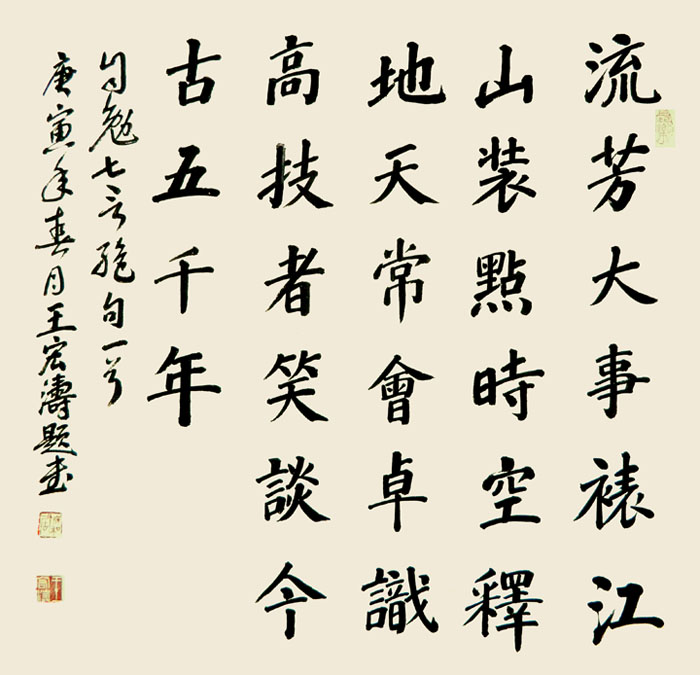 流芳大事裱江
山裝點時空釋
地天常會卓識
高技者笑談今
古五千年
自勉七言絶句一首
庚寅年春月王宏濤題書